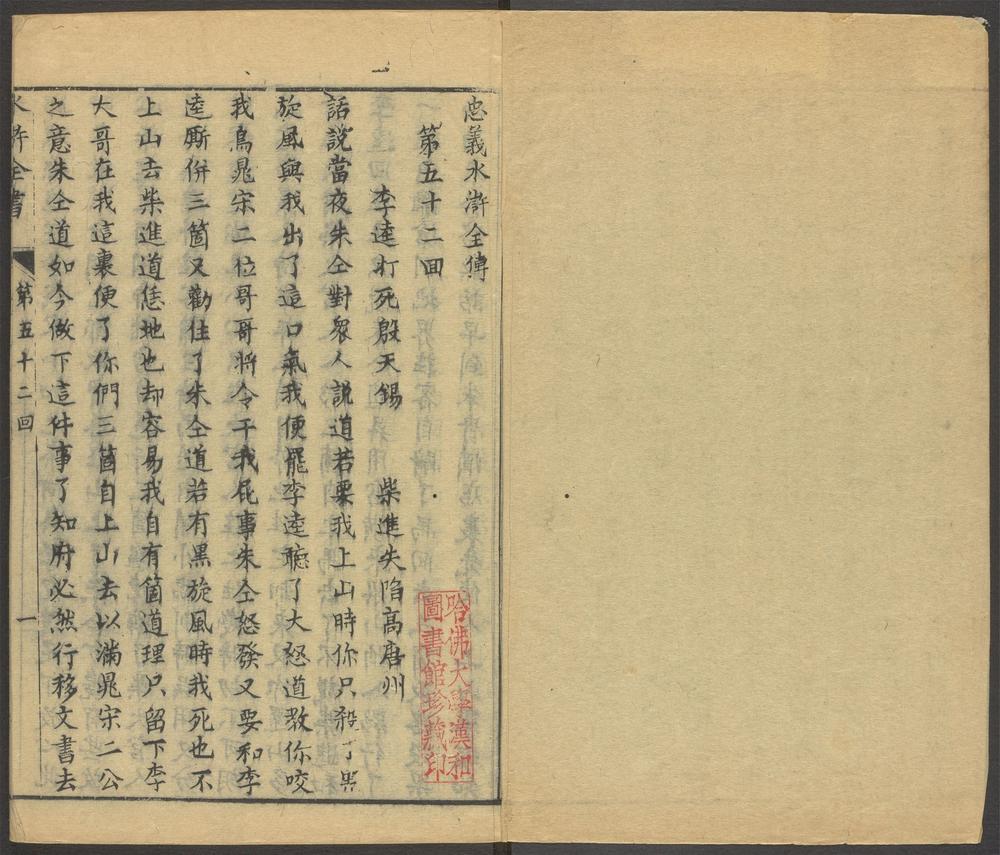 忠義水滸全傳
第五十二回
李逵打死殷天錫　柴進失陷高唐州
話說當夜朱仝對衆人說道若要我上山時你只殺了黑
旋風與我出了這口氣我便罷李逵聽了大怒道教你咬
我鳥晁宋二位哥哥將令干我屁事朱仝怒發又要和李
逵厮併三箇又勸住了朱仝道若有黑旋風時我死也不
上山去柴進道恁地也却容易我自有箇道理只留下李
大哥在我這裏便了你們三箇自上山去以滿晁宋二公
之意朱仝道如今做下這件事了知府必然行移文書去
水滸全書
第五十二回
一
哈佛大學漢和
圖書館珍藏印